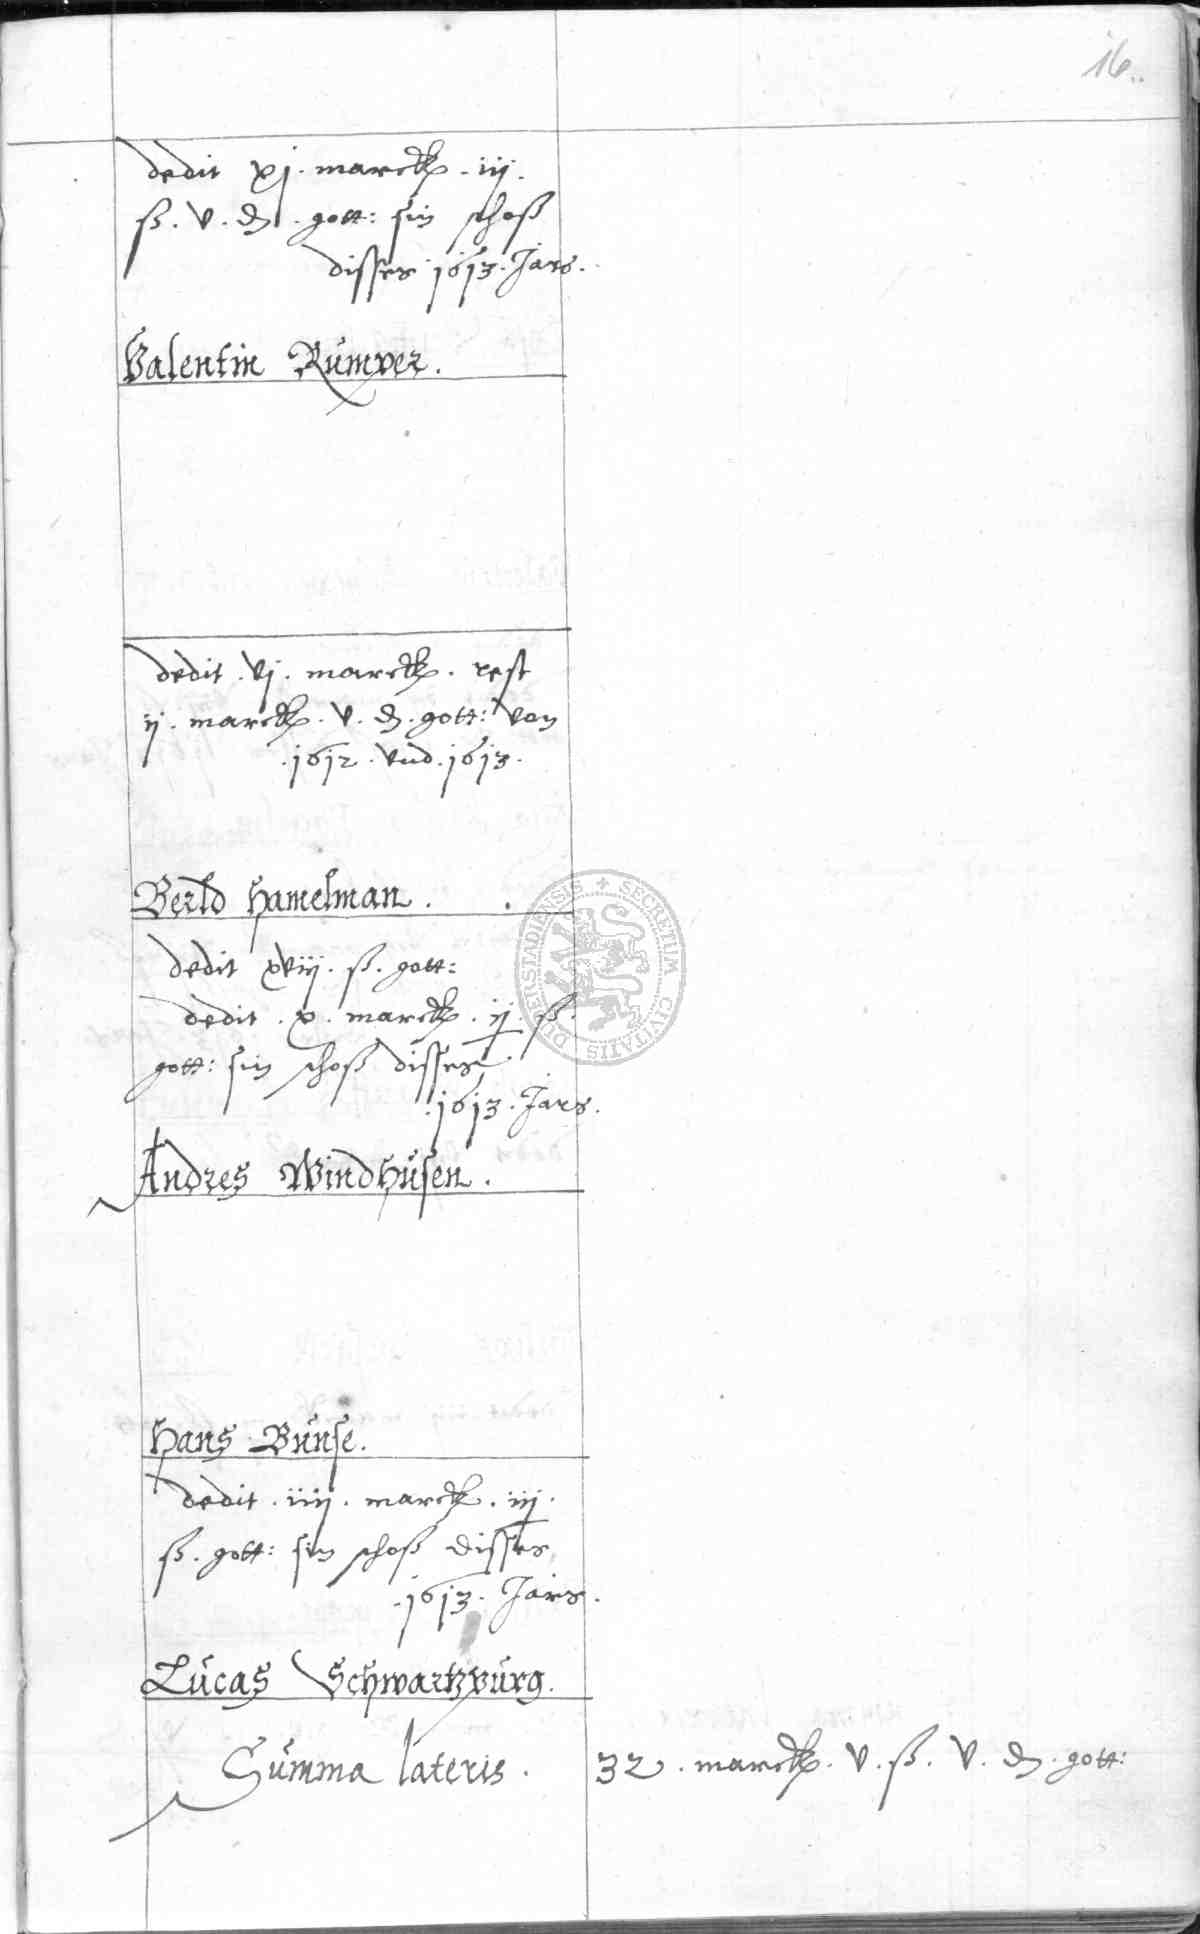 16.
dedit xj. marck. iij.
ß. v. d. gott: sin schoß
disses 1613. Jars.
Valentin Rümper.
dedit vj. marck. rest
ij. marck. v. d. gott: von
.1612. vnd .1613.
Berld Hamelman.
dedit xviij. ß. gott:
dedit . x . marck . ij . ß.
gott: sin schoß disses
.1613. Jars.
Andres Windhüsen.
Hans Bünse.
dedit . iiij . marck . iij .
ß. gott: sin schoß disses
.1613. Jars.
Lücas Schwartzbürg.
Sümma lateris . 32 . marck. v. ß. v. d. gott:
SECRETUM CIVITATIS DUDERSTADIENSIS